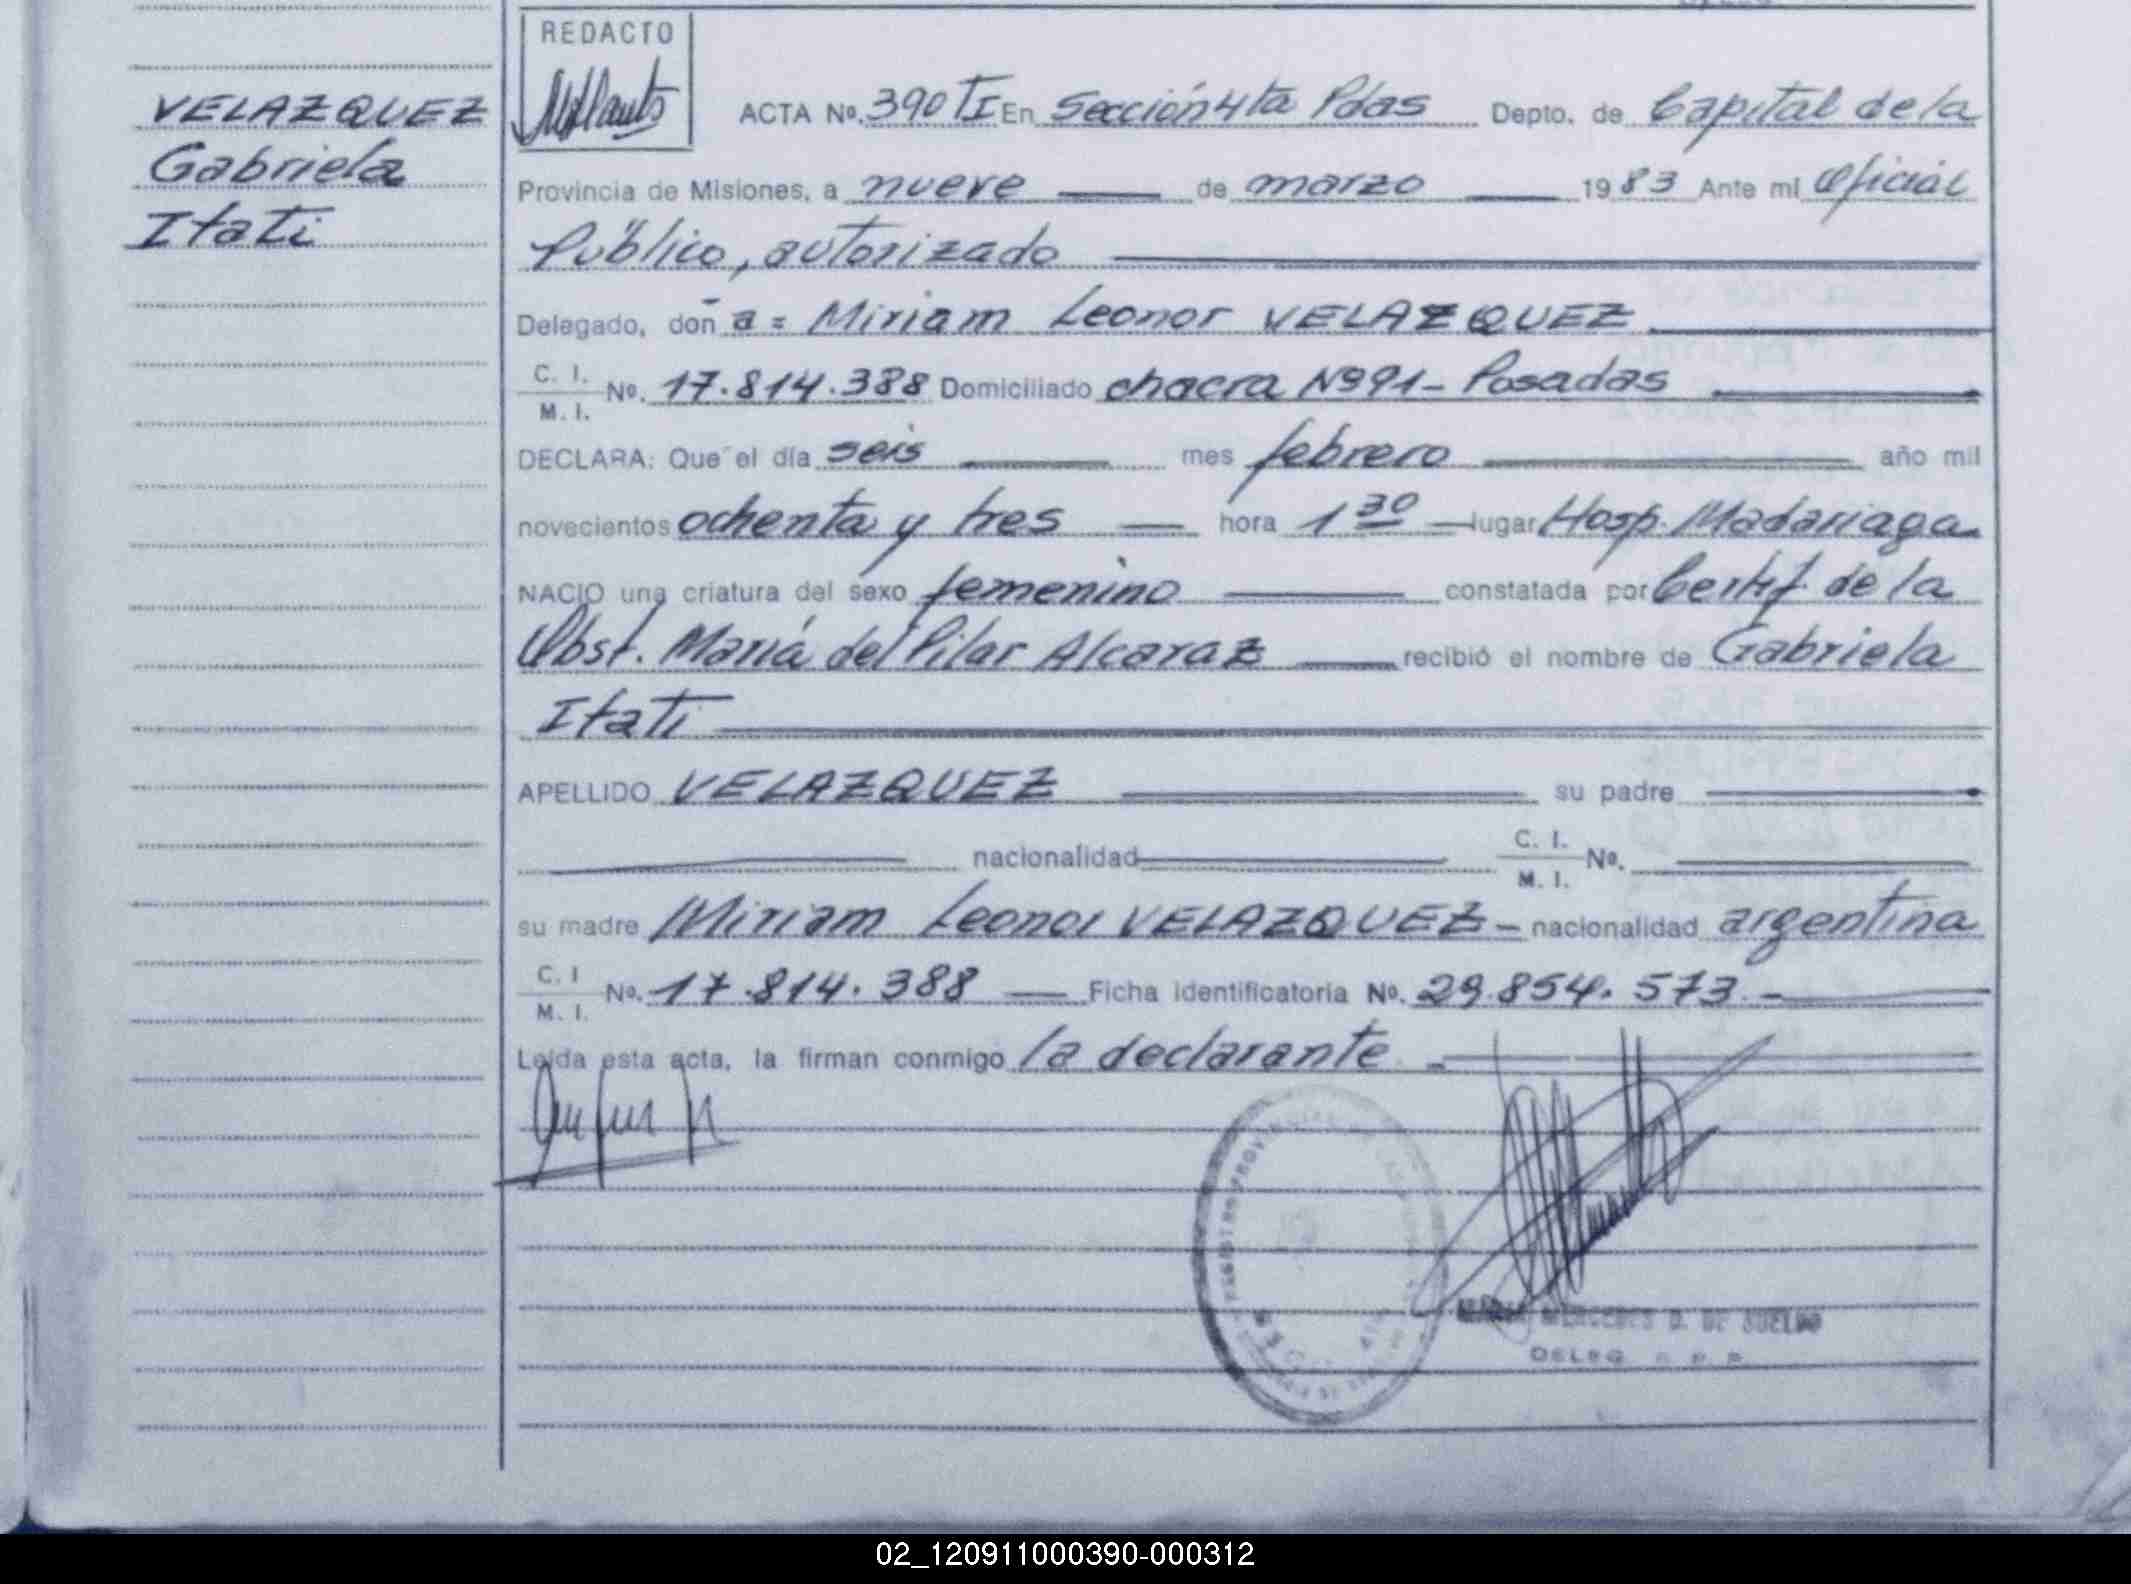 VELAZQUEZ
Gabriela
Itati
REDACTO
ACTA Nº. 390 TI En Sección 4ta Pdas Depto. de Capital de la
Provincia de Misiones, a nueve de marzo 1983 Ante mi Oficial
Público, autorizado
Delegado, doña = Miriam Leonor VELAZQUEZ
C. I.
M. I. Nº. 17.814.388 Domiciliado chacra Nº91- Posadas
DECLARA: Que el día seis mes febrero año mil
novecientos ochenta y tres hora 1 30 lugar Hosp. Madariaga
NACIO una criatura del sexo femenino constatada por Certif de la
Obst. María del Pilar Alcaraz recibió el nombre de Gabriela
Itati
APELLIDO VELAZQUEZ su padre
nacionalidad C. I.
M. I. Nº.
su madre Miriam Leonor VELAZQUEZ - nacionalidad argentina
C. I
M. I. Nº. 17.814.388 Ficha identificatoria Nº. 29.854.573.-
Leída esta acta, la firman conmigo la declarante.-
MERCEDES D. DE SUELDO
DELEG. R. P. P.
02_120911000390-000312